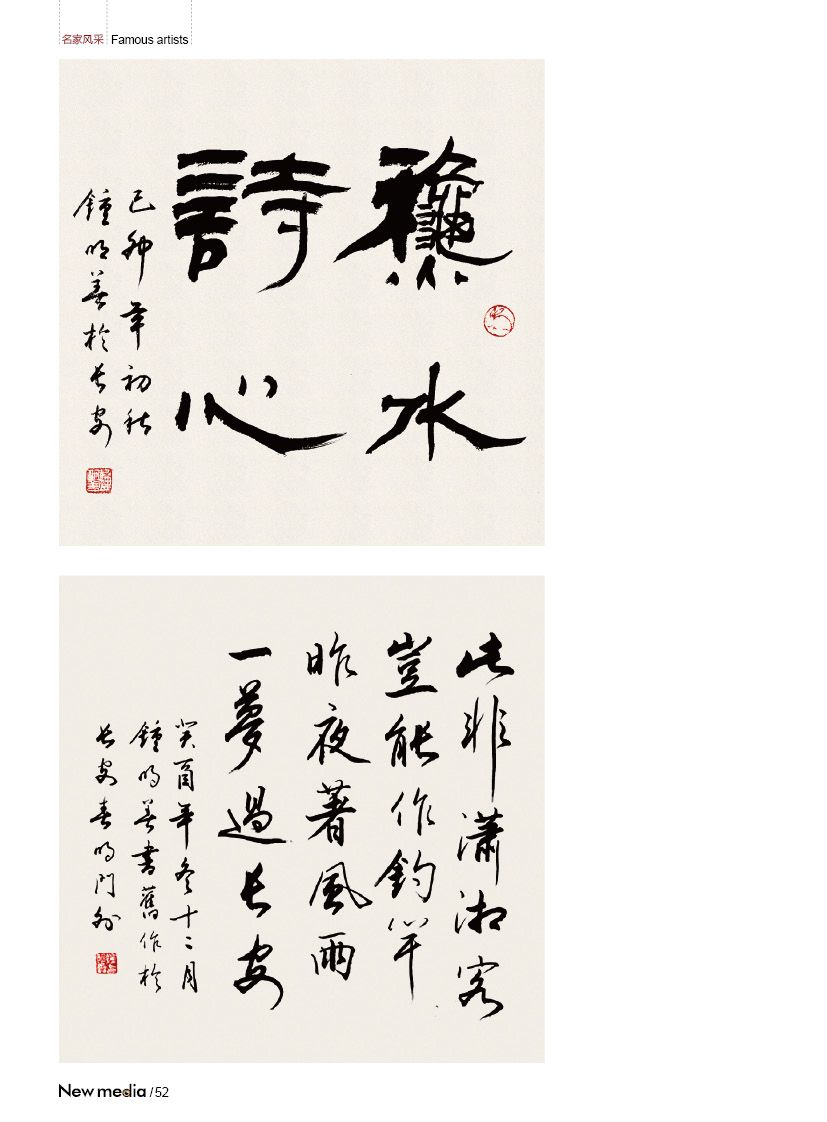 名家风采 Famous artists
龝水
詩心
己卯年初秋
鍾明善於長安
此非瀟湘客
豈能作釣竿
昨夜著風雨
一夢過長安
癸酉年冬十二月
鍾明善書舊作於
長安春明門外
New media /52